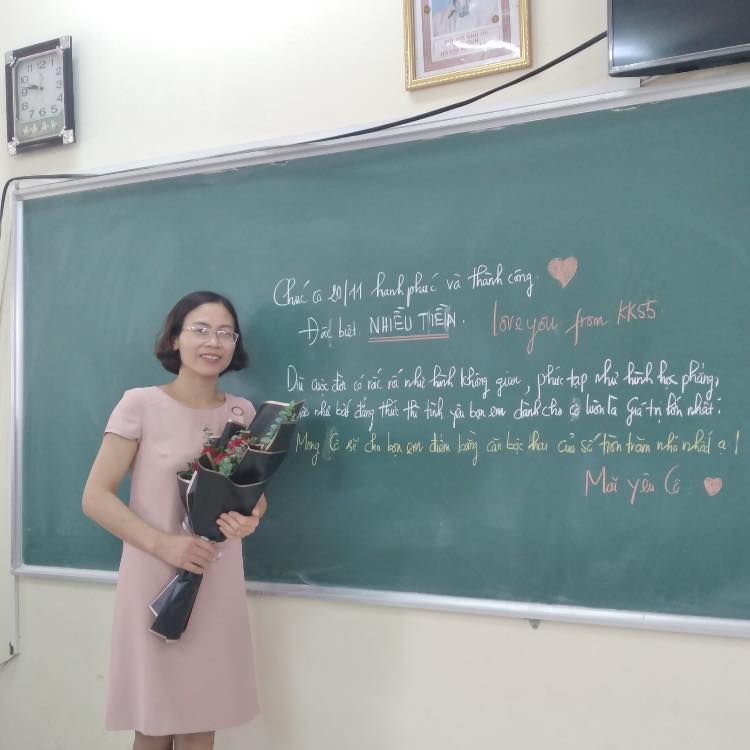 Chúc cô 20/11 hạnh phúc và thành công.
Đặc biệt NHIỀU TIỀN. love you from KK55
Dù cuộc đời có rắc rối như hình không gian, phức tạp như hình học phẳng,
như bất đẳng thức thì tình yêu bọn em dành cho cô luôn là giá trị lớn nhất!
Mong Cô sẽ cho bọn em điểm bằng căn bậc hai của số tròn trăm nhỏ nhất ạ!
Mãi yêu Cô